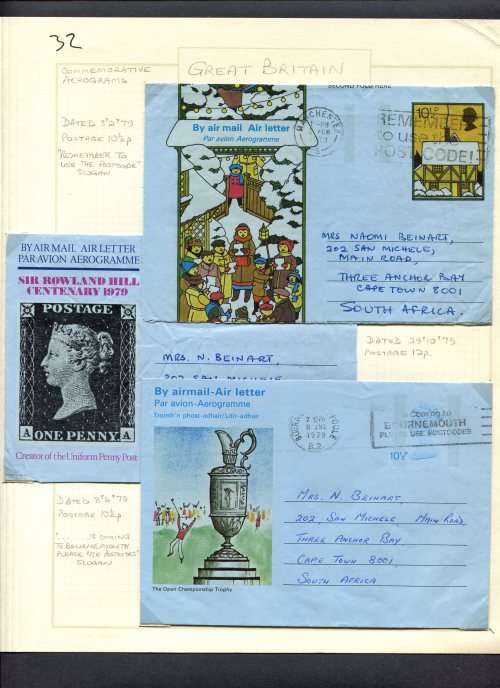 32
GREAT BRITAIN
COMMEMORATIVE
AEROGRAMS
DATED 3°2°79
POSTAGE 10½p
"REMEMBER TO
USE THE POSTCODE"
SLOGAN
SECOND FOLD HERE
By air mail Air letter
Par avion Aerogramme
MANCHESTER
REMEMBER
TO USE
POSTCODE!
10½P
MRS NAOMI BEINART,
202 SAN MICHELE,
MAIN ROAD,
THREE ANCHOR BAY
CAPE TOWN 8001
SOUTH AFRICA.
BY AIR MAIL AIR LETTER
PAR AVION AEROGRAMME
SIR ROWLAND HILL
CENTENARY 1979
POSTAGE
A ONE PENNY A
Creator of the Uniform Penny Post
MRS. N. BEINART,
202 SAN MICHELE
DATED 29°10°79
POSTAGE 12p.
By airmail-Air letter
Par avion-Aerogramme
POOLE
1979
Coming to
BOURNEMOUTH
PLEASE USE POSTCODES
10½
The Open Championship Trophy
MRS. N. BEINART,
202 SAN MICHELE, MAIN ROAD
THREE ANCHOR BAY
CAPE TOWN 8001,
SOUTH AFRICA
POSTAGE 10½p
PLEASE USE POSTCODES"
SLOGAN